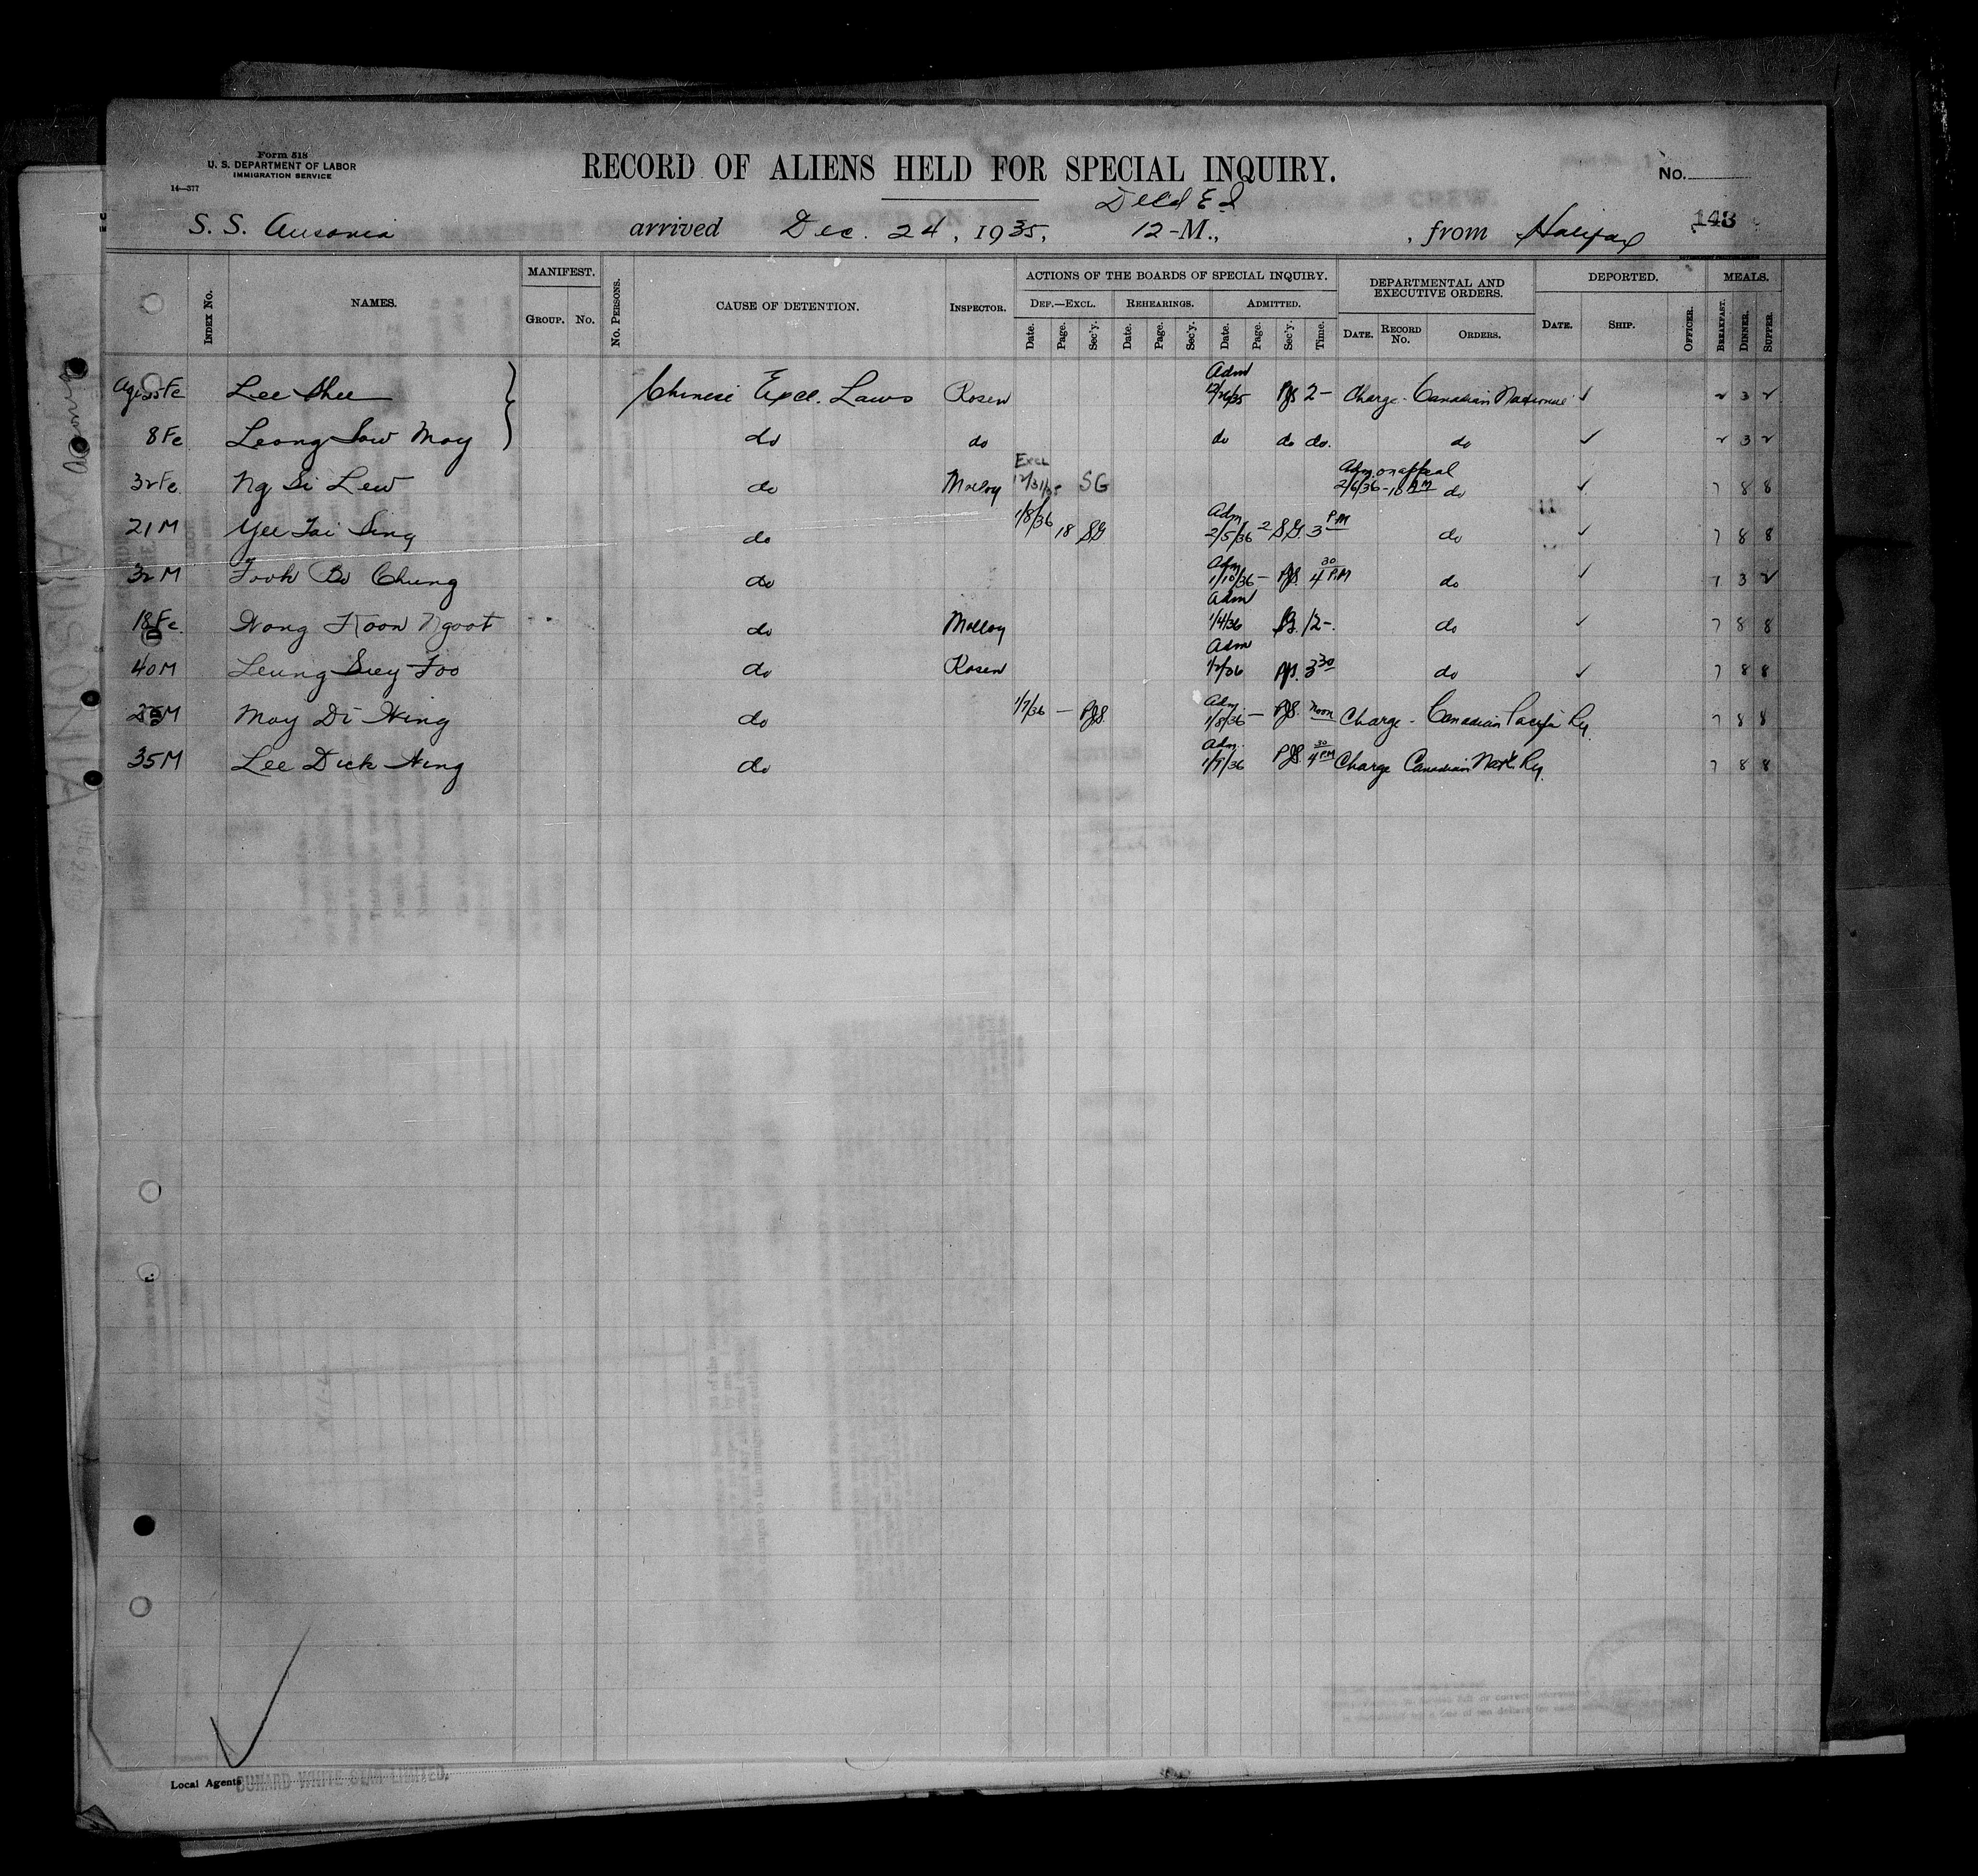 Form 518
U. S. DEPARTMENT OF LABOR
IMMIGRATION SERVICE
14—377
RECORD OF ALIENS HELD FOR SPECIAL INQUIRY.
No.
S. S. Ausonia arrived Dec. 24, 1935, 12-M., , from Halifax 143
INDEX No. NAMES. MANIFEST. GROUP. No. No. PERSONS. CAUSE OF DETENTION. INSPECTOR. ACTIONS OF THE BOARDS OF SPECIAL INQUIRY. DEPARTMENTAL AND EXECUTIVE ORDERS. DEPORTED. MEALS.
DEF.—EXCL. REHEARINGS. ADMITTED.
Date. Page. Sec'y. Date. Page. Sec'y. Date. Page. Sec'y. Time. DATE. RECORD No. ORDERS. DATE. SHIP. OFFICER. BREAKFAST. DINNER. SUPPER.
Lee Shee Chinese Excl. Laws Rosen Adm 12/26/35 PJS 2- Charge - Canadian National ✓ 2 3 2
8 Fe Leong Sow May do do do do do. do ✓ 2 3 2
32 Fe Ng Si Lew do Molloy Excl 12/31/35 SG Adm on appeal 2/6/36 - 10 AM do ✓ 7 8 8
21 M Yee Tai Sing do 1/8/36 18 SG Adm 2/5/36 2 SG. 3 PM do ✓ 7 8 8
32 M Fook Bo Chung do Adm 1/10/36 - PJS. 4 30 P.M do ✓ 7 3 2
18 Fe. Wong Koon Ngoot do Molloy Adm 1/4/36 SG. 12-. do ✓ 7 8 8
40 M Leung Suey Foo do Rosen Adm 1/2/36 PJS. 3 30 do ✓ 7 8 8
May Di Hing do 1/7/36 — PJS. Adm. 1/8/36 — PJS. noon Charge - Canadian Pacific Ry. 7 8 8
35 M Lee Dick Hing do Adm. 1/9/36 PJS. 4 30 PM Charge Canadian Nat'l Ry. 7 8 8
Local Agents CUNARD WHITE STAR LIMITED.